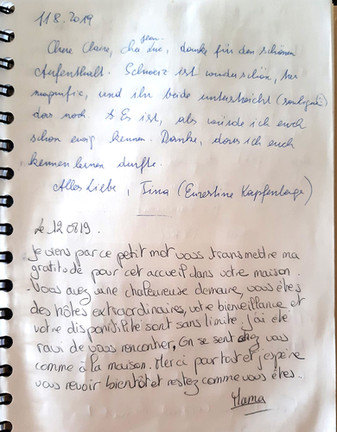 11.8.2019
Jean
Chere Claire, cher Luc, danke für den schönen
Aufenthalt. Schweiz ist wunderschön, tres
magnific, und ihr beide unterstreicht (souligne)
das noch. Es ist, als würde ich euch
schon ewig kennen. Danke, dass ich euch
kennenlernen durfte.
Alles Liebe, Tina (Ernestine Kapfenberger)
Le 12.08.19.
Je viens par ce petit mot vous transmettre ma
gratitude pour cet accueil dans votre maison.
Vous avez une chaleureuse demeure, vous êtes
des hôtes extraordinaires, votre bienveillance et
votre disponibilité sont sans limite. j'ai été
ravi de vous rencontrer, on se sent chez vous
comme à la maison. Merci pour tout et j'espère
vous revoir bientôt et restez comme vous êtes.
Mama